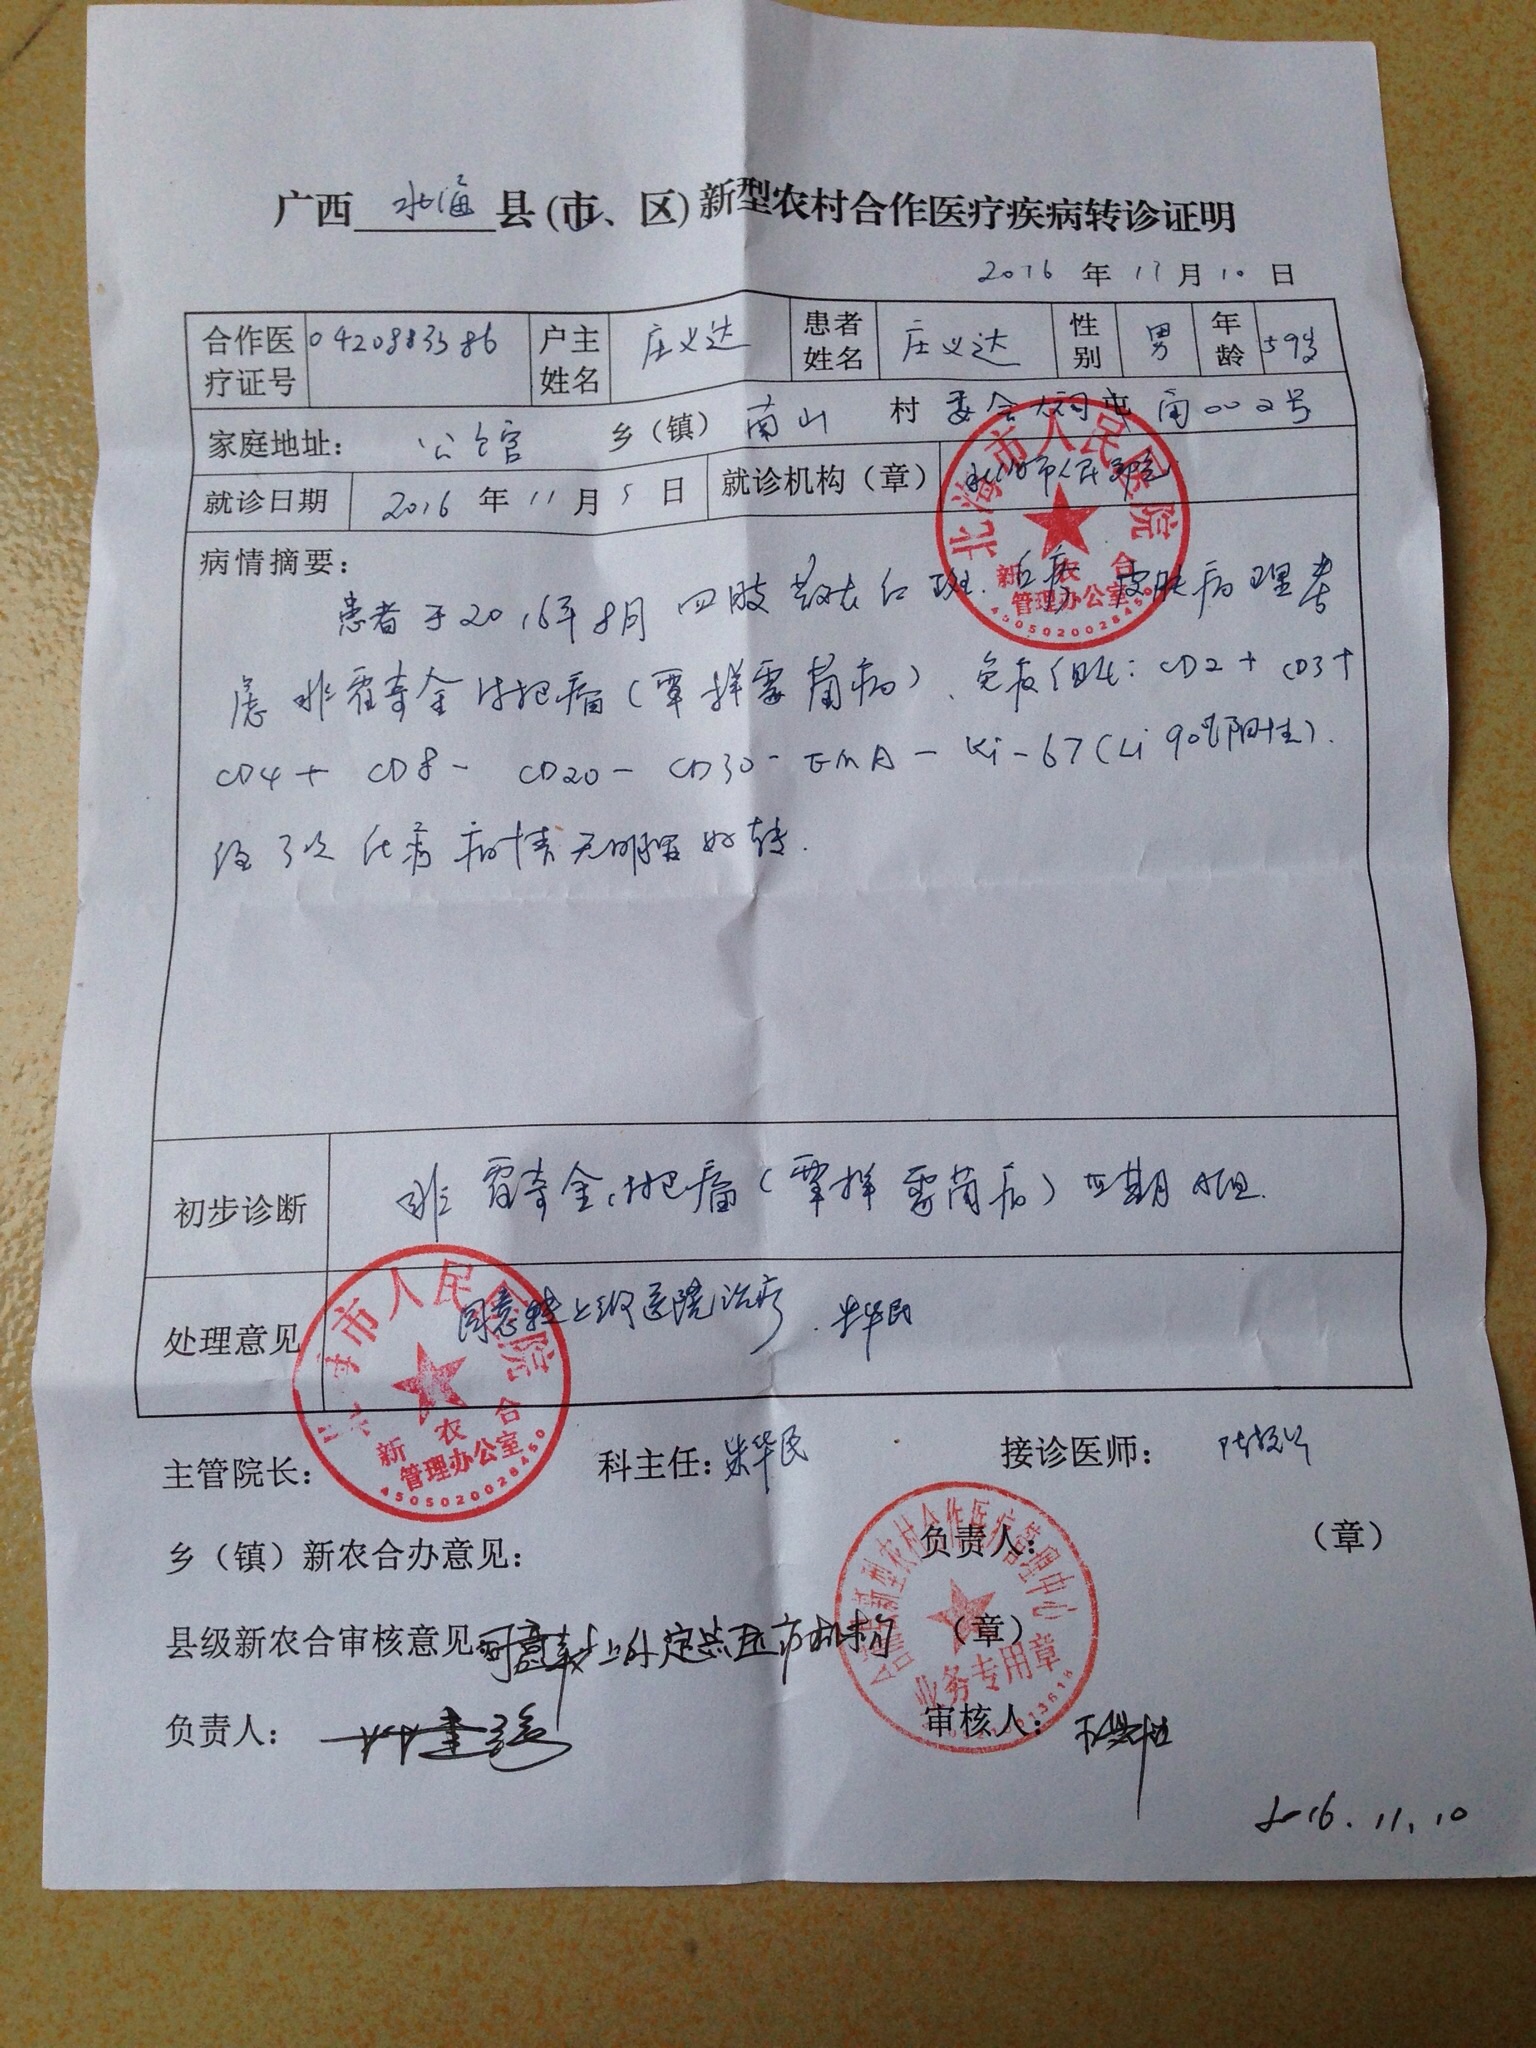 广西 北海 县(市、区)新型农村合作医疗疾病转诊证明
2016 年 11月 10 日
合作医疗证号 0420883386 户主姓名 庄义达 患者姓名 庄义达 性别 男 年龄 59岁
家庭地址： 公馆 乡（镇） 南山 村 委会 屯 002号
就诊日期 2016 年 11 月 5 日 就诊机构（章） 北海市人民医院
北海市人民医院
新农合
管理办公室
病情摘要：
患者于2016年8月四肢 红斑. 皮肤病理考
虑非霍奇金淋巴瘤(蕈样霉菌病)、免疫组化：CD2+ CD3+
CD4+ CD8- CD20- CD30- EMA- Ki-67(Li 90%阳性).
经3次化疗病情无明显好转.
初步诊断 非霍奇金淋巴瘤(蕈样霉菌病) 期 A组.
处理意见 同意转上级医院治疗. 朱华民
市人民医院
新农合
管理办公室
4505020028450
主管院长： 科主任：朱华民 接诊医师：
乡（镇）新农合办意见： 负责人： （章）
县级新农合审核意见 同意转上外定点医疗机构 （章）
新型农村合作医疗管理中心
业务专用章
负责人： 审核人：
2016.11.10